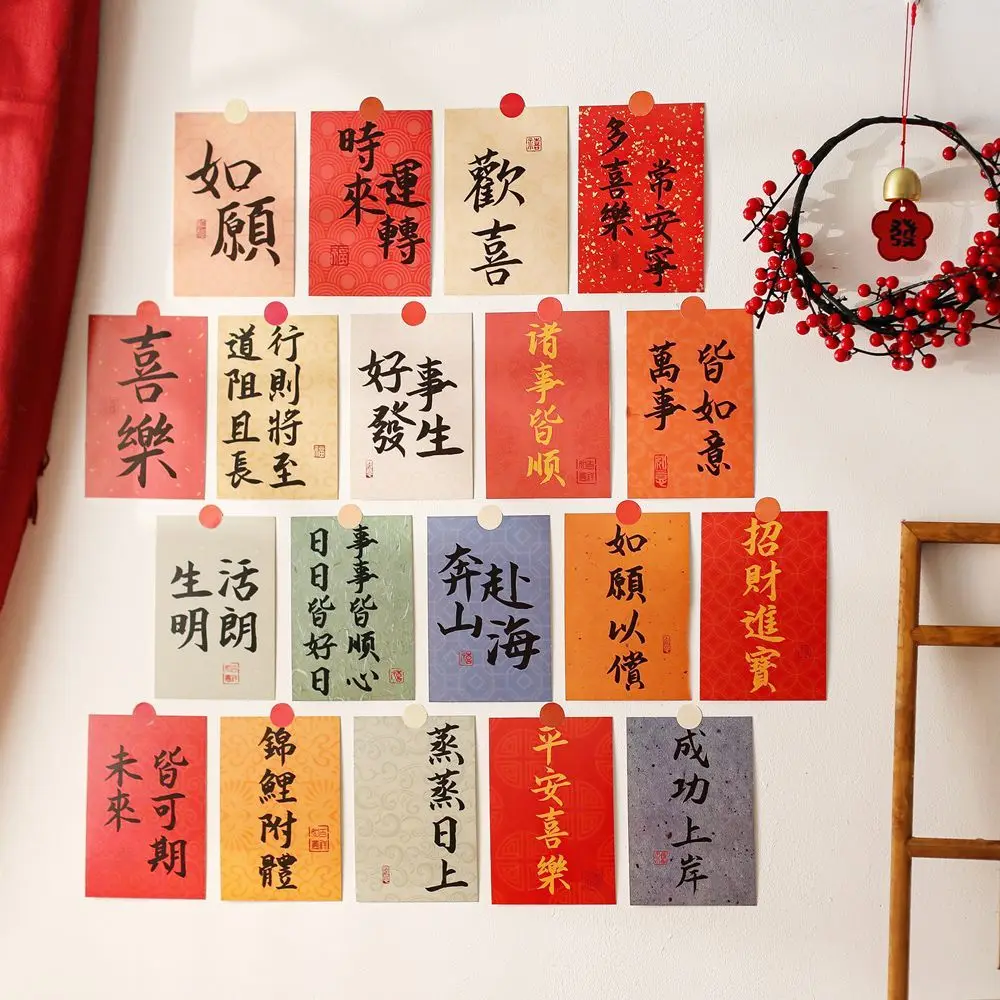 如願
時來
運轉
歡喜
多喜樂
常安寧
喜樂
道阻且長
行則將至
好事
發生
诸事皆顺
萬事
皆如意
生活
明朗
事事皆順心
日日皆好日
奔山
赴海
如願以償
招財進寶
未來
皆可期
錦鯉附體
蒸蒸日上
平安喜樂
成功上岸
發